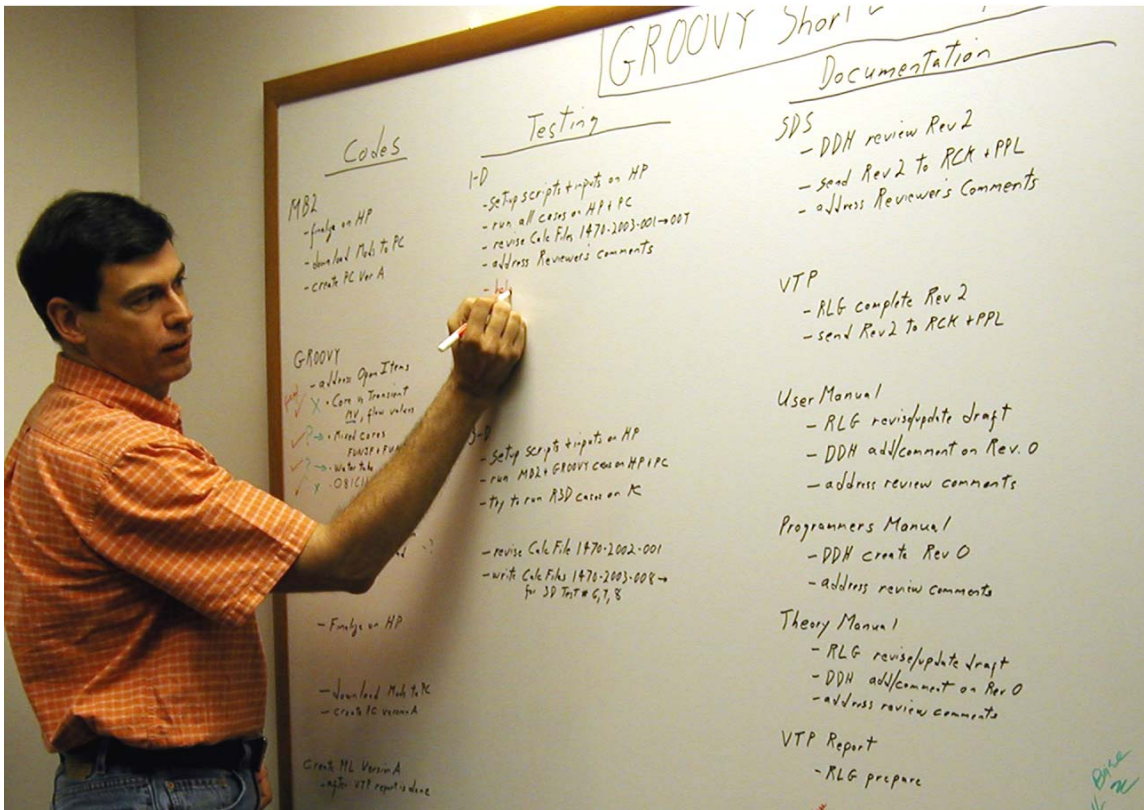 GROOVY Short
Codes
MB2
- finalize on HP
- download Mods to PC
- create PC Ver A
GROOVY
- address Open Items
X • Core vs Transient
MV, flow values
✓ ? → • Mixed cores
✓ ? → • Water tube
✓ X
- Finalize on HP
- download Mods to PC
- create PC version A
Create ML Version A
- after VTP report is done
Testing
1-D
- setup scripts + inputs on HP
- run all cases on HP + PC
- revise Calc Files 1470-2003-001→007
- address Reviewer's comments
3-D
- setup scripts + inputs on HP
- run MB2 + GROOVY cases on HP + PC
- try to run R3D cases on PC
- revise Calc File 1470-2002-001
- write Calc Files 1470-2003-008→
for 3D Test # 6,7,8
Documentation
SDS
- DDH review Rev 2
- send Rev 2 to RCK + PPL
- address Reviewer's Comments
VTP
- RLG complete Rev 2
- send Rev 2 to RCK + PPL
User Manual
- RLG revise/update draft
- DDH add/comment on Rev. 0
- address review comments
Programmers Manual
- DDH create Rev 0
- address review comments
Theory Manual
- RLG revise/update draft
- DDH add/comment on Rev 0
- address review comments
VTP Report
- RLG prepare